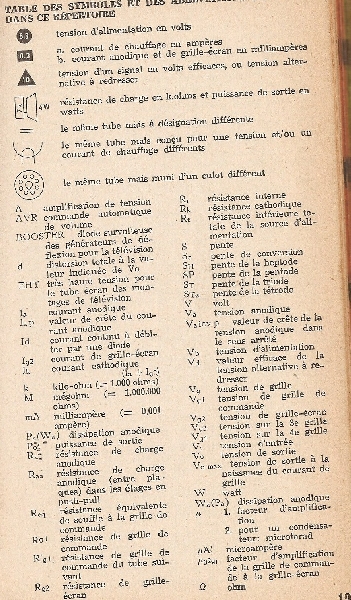 TABLE DES SYMBOLES ET DES
DANS CE RÉPERTOIRE
tension d'alimentation en volts
a. courant de chauffage en ampères
b. courant anodique et de grille-écran en milliampères
tension d'un signal en volts efficaces, ou tension alter-
native à redresser
résistance de charge en k.ohms et puissance de sortie en
watts
le même tube mais à désignation différente
le même tube mais conçu pour une tension et/ou un
courant de chauffage différents
le même tube mais muni d'un culot différent
A amplification de tension
AVR commande automatique
de volume
BOOSTER diode survolteuse
des générateurs de dé-
flexion pour la télévision
d distorsion totale à la va-
leur indiquée de Vo
THT très haute tension pour
le tube écran des mon-
tages de télévision
Ia courant anodique
valeur de crête du cou-
rant anodique
Id courant continu à débi-
ter par une diode
Ig2 courant de grille-écran
Ik courant cathodique
k kilo-ohm (= 1.000 ohms)
M mégohm (= 1.000.000
ohms)
mA milliampère (= 0,001
ampère)
dissipation anodique
puissance de sortie
résistance de charge
anodique
Raa résistance de charge
anodique (entre pla-
ques) dans les étages en
push-pull
résistance équivalente
de souffle à la grille de
commande
Rg1 résistance de grille de
commande
résistance de grille de
commande du tube sui-
vant
Rg2 résistance de grille-
écran
Ri résistance interne
Rk résistance cathodique
Rt résistance intérieure to-
tale de la source d'ali-
mentation
S pente
pente de conversion
SH pente de la heptode
SP pente de la pentode
ST pente de la triode
pente de la tétrode
V volt
Va tension anodique
valeur de crête de la
tension anodique dans
le sens arrêté
Vb tension d'alimentation
valeur efficace de la
tension alternative à re-
dresser
Vg tension de grille
Vg1 tension de grille de
commande
Vg2 tension de grille-écran
Vg3 tension sur la 3e grille
Vg4 tension sur la 4e grille
Vi tension d'entrée
Vo tension de sortie
Vo max tension de sortie à la
naissance du courant de
grille
W watt
Wa(Pa) dissipation anodique
1. facteur d'amplifica-
tion
2. pour un condensa-
teur: microfarad
µA microampère
facteur d'amplification
de la grille de comman-
de à la grille écran
Ω ohm